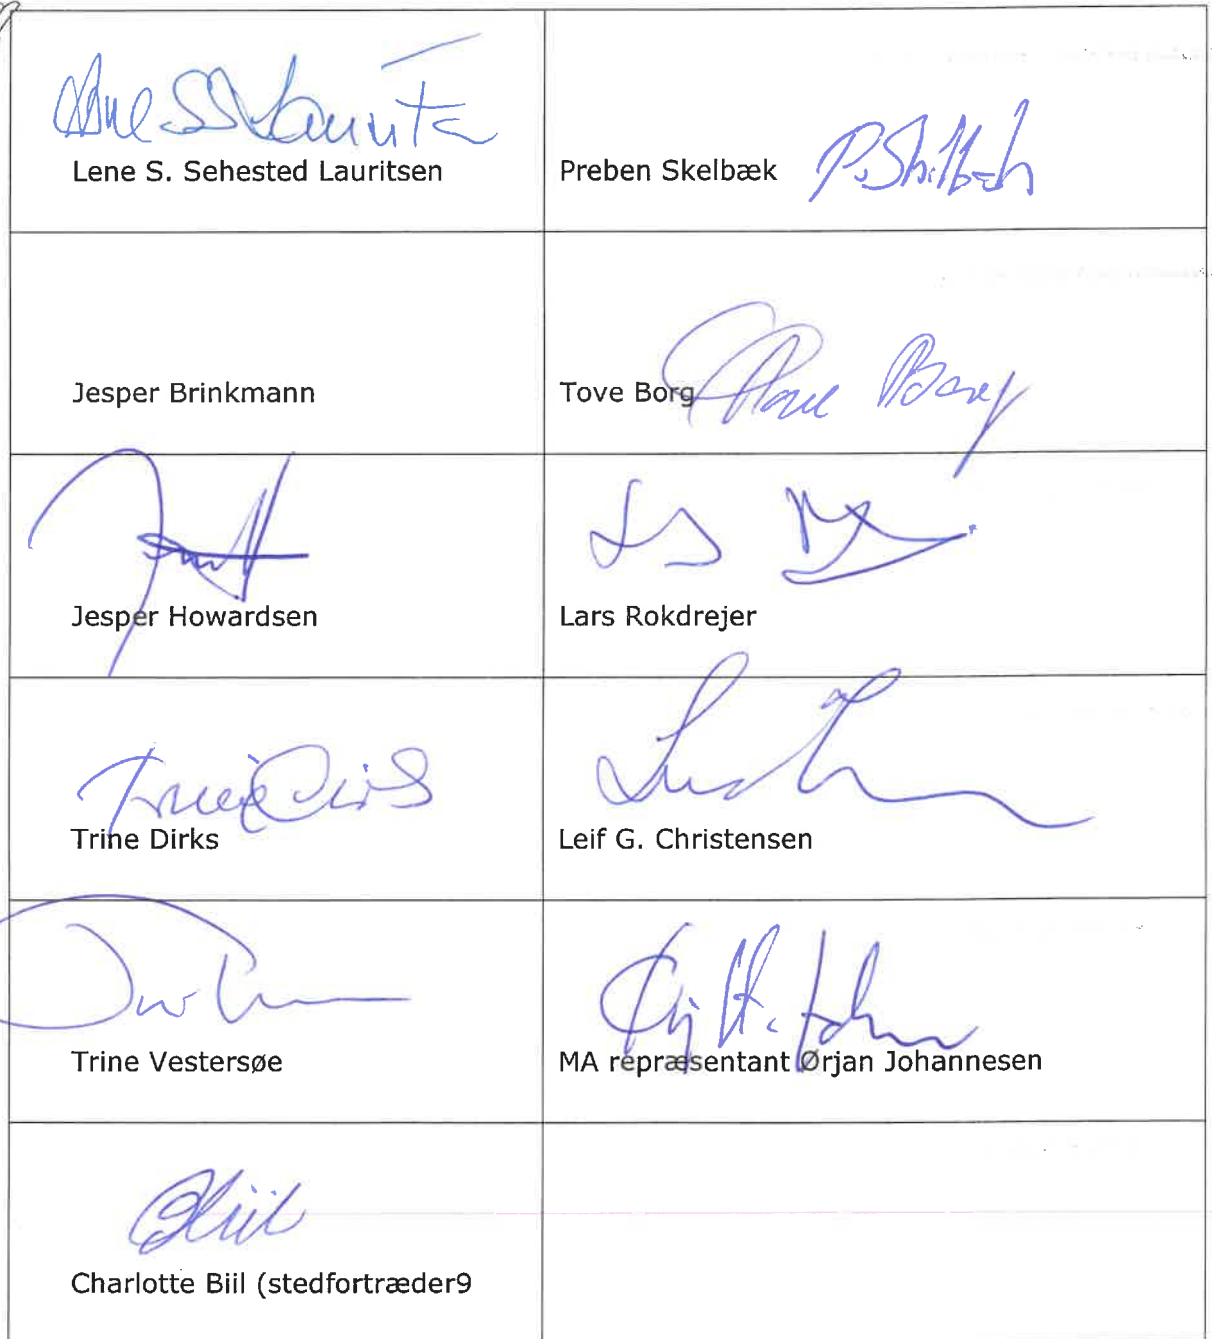 Lene S. Sehested Lauritsen
Preben Skelbæk
P. Skelbæk
Jesper Brinkmann
Tove Borg
Tove Borg
Jesper Howardsen
Lars Rokdrejer
Trine Dirks
Trine Dirks
Leif G. Christensen
Trine Vestersøe
MA repræsentant Ørjan Johannesen
Charlotte Biil (stedfortræder9